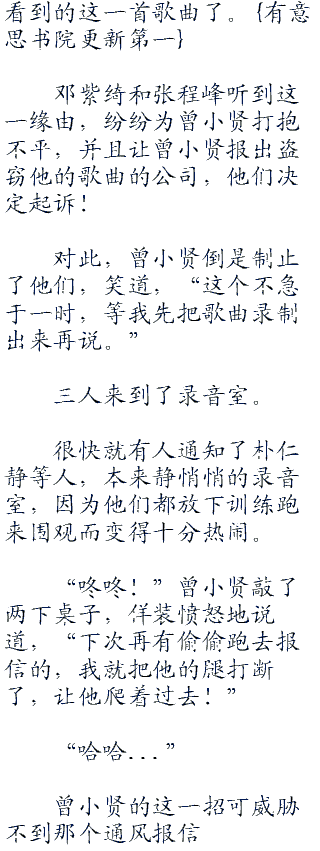 看到的这一首歌曲了。{有意
思书院更新第一}
邓紫绮和张程峰听到这
一缘由，纷纷为曾小贤打抱
不平，并且让曾小贤报出盗
窃他的歌曲的公司，他们决
定起诉！
对此，曾小贤倒是制止
了他们，笑道，“这个不急
于一时，等我先把歌曲录制
出来再说。”
三人来到了录音室。
很快就有人通知了朴仁
静等人，本来静悄悄的录音
室，因为他们都放下训练跑
来围观而变得十分热闹。
“咚咚！”曾小贤敲了
两下桌子，佯装愤怒地说
道，“下次再有偷偷跑去报
信的，我就把他的腿打断
了，让他爬着过去！”
“哈哈...”
曾小贤的这一招可威胁
不到那个通风报信